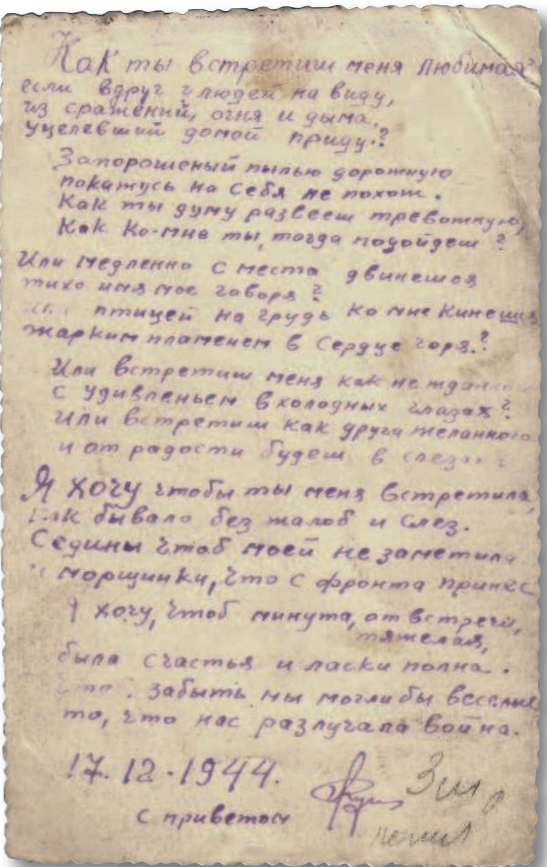 Как ты встретиш меня любимая
если вдруг у людей на виду,
из сражений, огня и дыма,
уцелевший домой приду.?
Запорошеный пылью дорожную
покажусь на себя не похож.
Как ты думу развееш тревожную,
Как ко-мне ты, тогда подойдеш?
Или медленно с места двинешся
тихо имя мое говоря?
птицей на грудь ко мне кинешся
жарким пламенем в сердце горя.?
Или встретиш меня как не жданного
с удивленьем в холодных глазах?
Или встретиш как друга желанного
и от радости будеш в слезах
Я хочу чтобы ты меня встретила,
как бывало без жалоб и слез.
Седины чтоб моей не заметила
морщинки, что с фронта принес
Я хочу, чтоб минута, от встречи,
тяжелая,
была счастья и ласки полна.
забыть мы могли бы веселые
то, что нас разлучала война.
17.12.1944.
с приветом